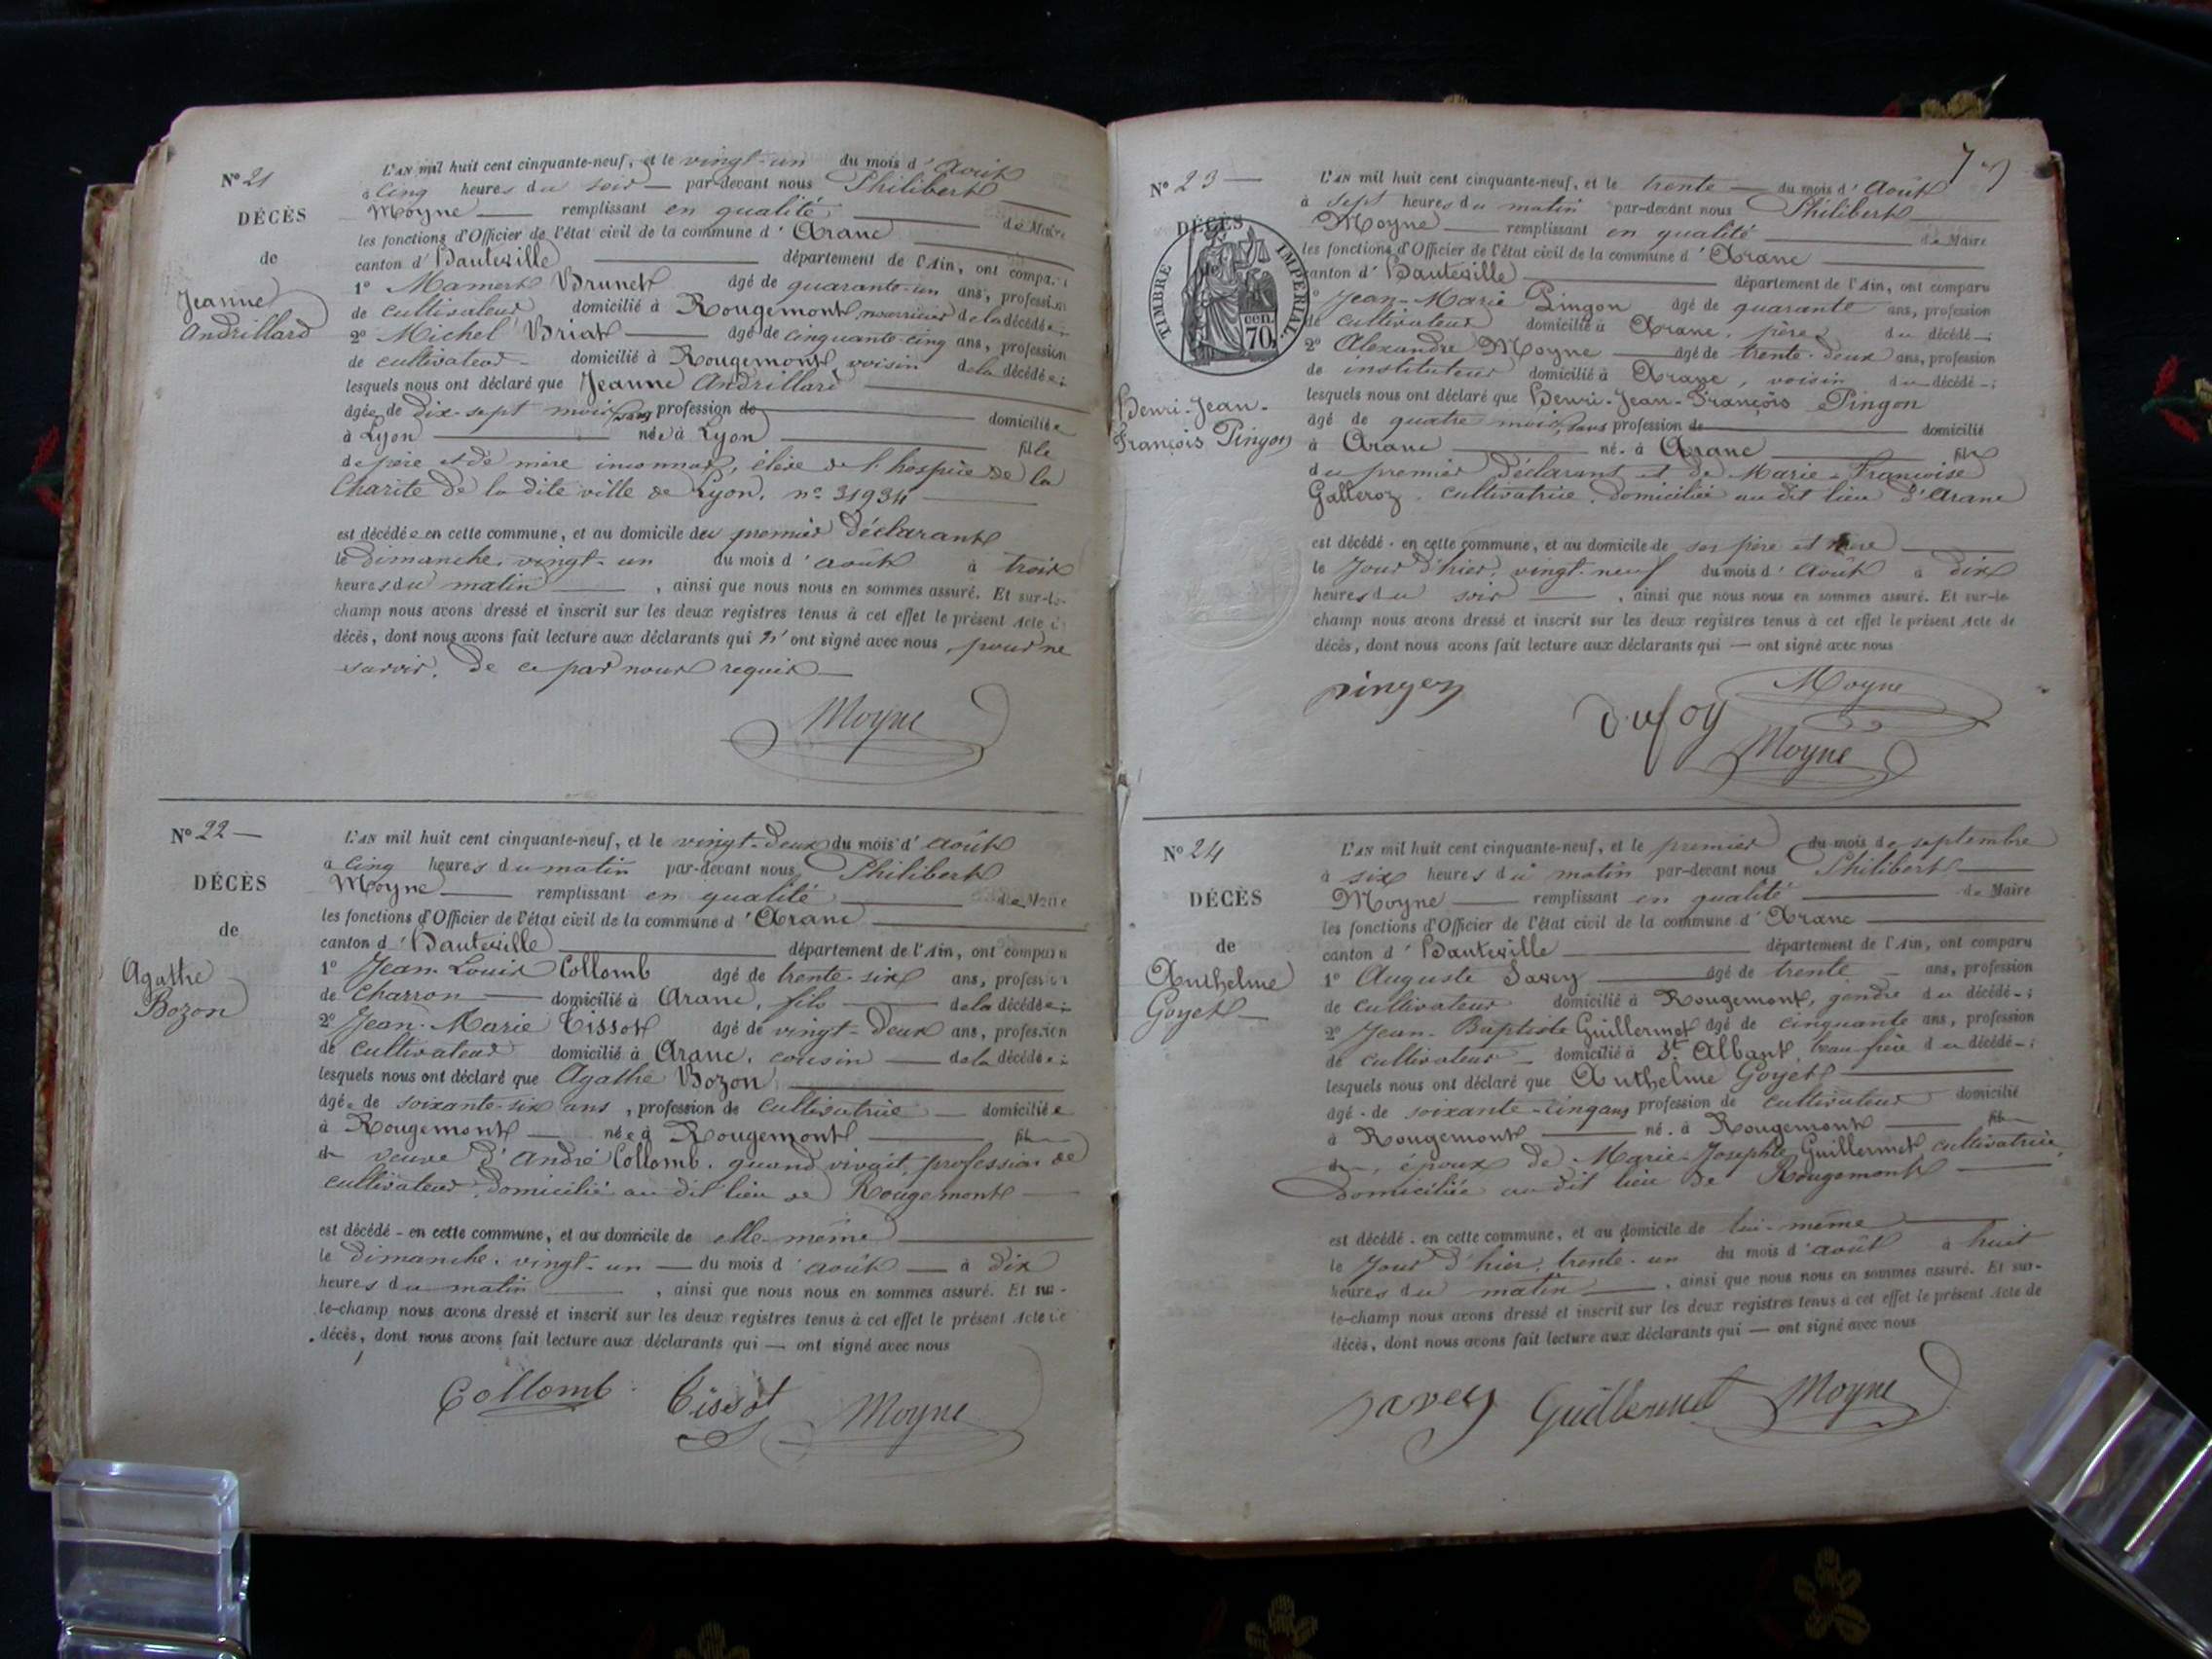 N° 21
DÉCÈS
de
Jeanne
Andrillard
L'AN mil huit cent cinquante-neuf, et le vingt-un du mois d'Août
à Cinq heures du soir — par-devant nous Philibert
Moyne — remplissant en qualité — de Maire
les fonctions d'Officier de l'état civil de la commune d'Aranc
canton d'Hauteville — département de l'Ain, ont compa
1° Mamert Brunet âgé de quarante-un ans, profession
de cultivateur domicilié à Rougemont, nourricier de la décédée;
2° Michel Briat — âgé de cinquante-cinq ans, profession
de cultivateur - domicilié à Rougemont, voisin de la décédée;
lesquels nous ont déclaré que Jeanne Andrillard
âgée de dix-sept mois, sans profession de — domiciliée
à Lyon — née à Lyon — fille
de père et de mère inconnus, élève de l'hospice de la
Charité de la dite ville de Lyon, n° 31934
est décédée en cette commune, et au domicile du premier déclarant
le dimanche, vingt-un du mois d'août à trois
heures du matin — , ainsi que nous nous en sommes assuré. Et sur-le-
champ nous avons dressé et inscrit sur les deux registres tenus à cet effet le présent Acte de
décès, dont nous avons fait lecture aux déclarants qui n'ont signé avec nous, pour ne
savoir, de ce par nous requis —
Moyne
N° 22 —
DÉCÈS
de
Agathe
Bozon
L'AN mil huit cent cinquante-neuf, et le vingt-deux du mois d'août
à Cinq heures du matin par-devant nous Philibert
Moyne — remplissant en qualité — de Maire
les fonctions d'Officier de l'état civil de la commune d'Aranc
canton d'Hauteville — département de l'Ain, ont comparu
1° Jean-Louis Collomb âgé de trente-six ans, profession
de Charron — domicilié à Aranc, fils — de la décédée;
2° Jean-Marie Tissot âgé de vingt-deux ans, profession
de cultivateur domicilié à Aranc, cousin — de la décédée;
lesquels nous ont déclaré que Agathe Bozon
âgée de soixante-six ans, profession de cultivatrice — domiciliée
à Rougemont — née à Rougemont — fil
d veuve d'André Collomb, quand vivait, profession de
cultivateur, domicilié au dit lieu de Rougemont
est décédé - en cette commune, et au domicile de elle-même
le dimanche, vingt-un — du mois d'août — à dix
heures du matin — , ainsi que nous nous en sommes assuré. Et sur-
le-champ nous avons dressé et inscrit sur les deux registres tenus à cet effet le présent Acte de
décès, dont nous avons fait lecture aux déclarants qui — ont signé avec nous
Collomb Tissot Moyne
N° 23 —
DÉCÈS
TIMBRE IMPÉRIAL
70 cen.
Henri-Jean-
François Pingon
L'AN mil huit cent cinquante-neuf, et le trente — du mois d'Août
à sept heures du matin par-devant nous Philibert
Moyne — remplissant en qualité — de Maire
les fonctions d'Officier de l'état civil de la commune d'Aranc
canton d'Hauteville — département de l'Ain, ont comparu
1° Jean-Marie Pingon âgé de quarante ans, profession
de cultivateur domicilié à Aranc, père du décédé —;
2° Alexandre Moyne — âgé de trente-deux ans, profession
de instituteur domicilié à Aranc, voisin du décédé —;
lesquels nous ont déclaré que Henri-Jean-François Pingon
âgé de quatre mois, sans profession de — domicilié
à Aranc — né à Aranc — fils
du premier déclarant et de Marie-Françoise
Galleroz, cultivatrice, domiciliée au dit lieu d'Aranc
est décédé - en cette commune, et au domicile de ses père et mère
le Jour d'hier, vingt-neuf du mois d'Août à dix
heures du soir — , ainsi que nous nous en sommes assuré. Et sur-le
champ nous avons dressé et inscrit sur les deux registres tenus à cet effet le présent Acte de
décès, dont nous avons fait lecture aux déclarants qui — ont signé avec nous
pingon Moyne
Dufoy
Moyne
N° 24
DÉCÈS
de
Anthelme
Goyet —
L'AN mil huit cent cinquante-neuf, et le premier du mois de septembre
à six heures du matin par-devant nous Philibert
Moyne — remplissant en qualité — de Maire
les fonctions d'Officier de l'état civil de la commune d'Aranc
canton d'Hauteville — département de l'Ain, ont comparu
1° Auguste Savey — âgé de trente — ans, profession
de cultivateur domicilié à Rougemont, gendre du décédé -;
2° Jean-Baptiste Guillermet âgé de cinquante ans, profession
de cultivateur - domicilié à St Albant, beau frère du décédé -;
lesquels nous ont déclaré que Anthelme Goyet
âgé - de soixante-cinq ans profession de cultivateur domicilié
à Rougemont — né - à Rougemont — fils
d, époux de Marie-Josephte Guillermet, cultivatrice,
domiciliée au dit lieu de Rougemont
est décédé - en cette commune, et au domicile de lui-même
le Jour d'hier, trente-un du mois d'août à huit
heures du matin — , ainsi que nous nous en sommes assuré. Et sur-
le-champ nous avons dressé et inscrit sur les deux registres tenus à cet effet le présent Acte de
décès, dont nous avons fait lecture aux déclarants qui — ont signé avec nous
Savey Guillermet Moyne